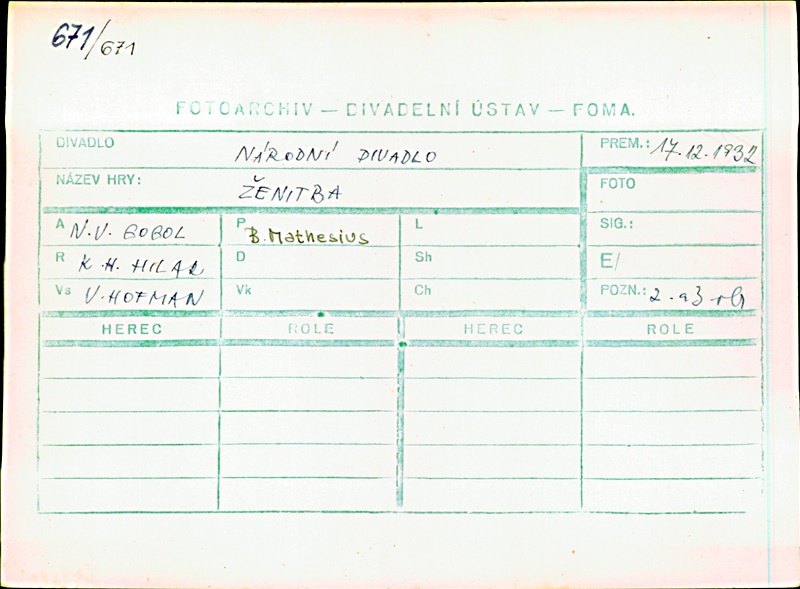 671/671
FOTOARCHIV — DIVADELNÍ ÚSTAV — FOMA.
DIVADLO NÁRODNÍ DIVADLO PREM.: 17.12.1932
NÁZEV HRY: ŽENITBA FOTO
A N.V. GOGOL P B. Mathesius L SIG.:
R K. H. HILAR D Sh E/
Vs V. HOFMAN Vk Ch POZN.: 2. a 3
HEREC ROLE HEREC ROLE